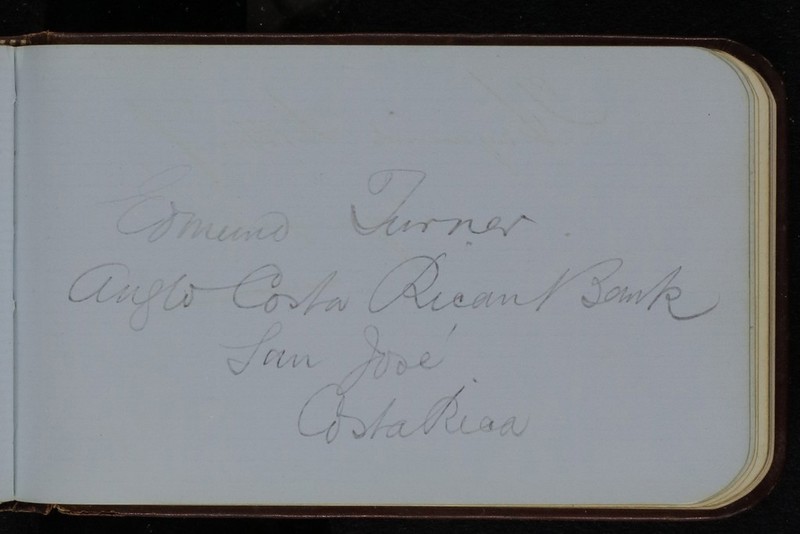 Edmund Turner.
Anglo Costa Rican Bank
San José
Costa Rica